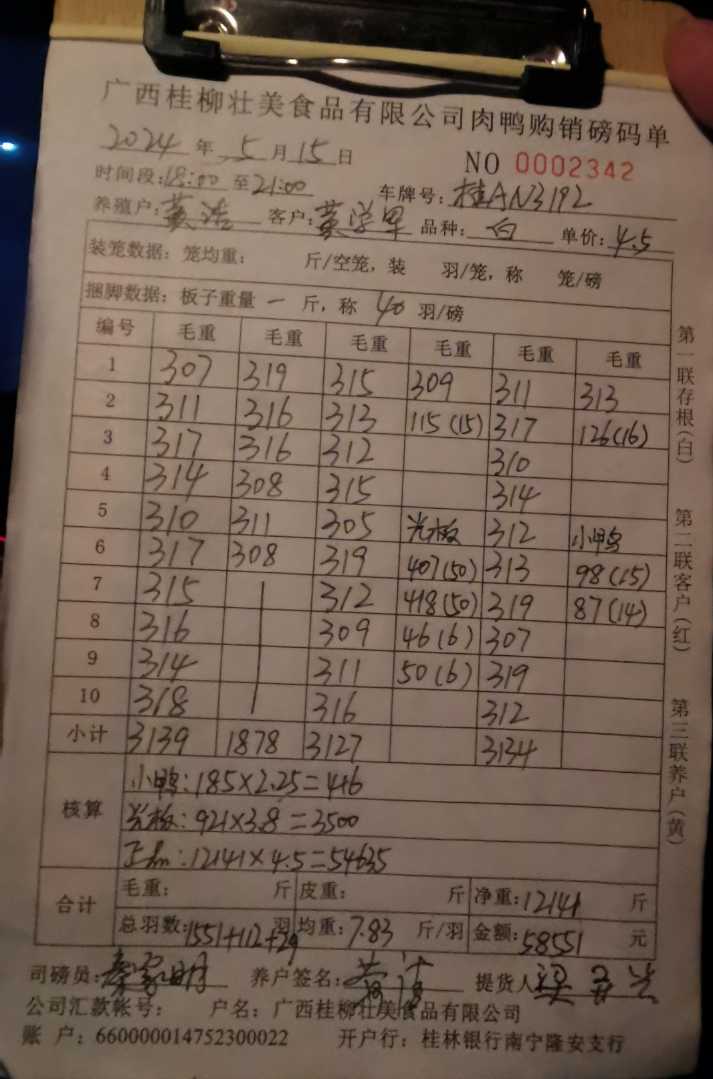 广西桂柳壮美食品有限公司肉鸭购销磅码单
2024年5月15日 NO 0002342
时间段:18:00至21:00 车牌号:桂AN3192
养殖户:黄浩 客户: 品种:白 单价:4.5
装笼数据: 笼均重: 斤/空笼, 装 羽/笼, 称 笼/磅
捆脚数据: 板子重量 一 斤, 称 40 羽/磅
编号 毛重 毛重 毛重 毛重 毛重 毛重
1 307 319 315 309 311 313
2 311 316 313 115(15) 317 126(16)
3 317 316 312 310
4 314 308 315 314
5 310 311 305 光板 312 小鸭
6 317 308 319 407(50) 313 98(15)
7 315 312 418(50) 319 87(14)
8 316 309 46(6) 307
9 314 311 50(6) 319
10 318 316 312
小计 3139 1878 3127 3134
核算
小鸭:185×2.25=416
光板:921×3.8=3500
正品:12141×4.5=54635
合计
毛重: 斤 皮重: 斤 净重:12141 斤
总羽数:1551+112+29 羽 均重:7.83 斤/羽 金额:58551 元
司磅员: 养户签名: 提货人
公司汇款帐号: 户名:广西桂柳壮美食品有限公司
账 户:660000014752300022 开户行:桂林银行南宁隆安支行
第一联存根(白)
第二联客户(红)
第三联养户(黄)